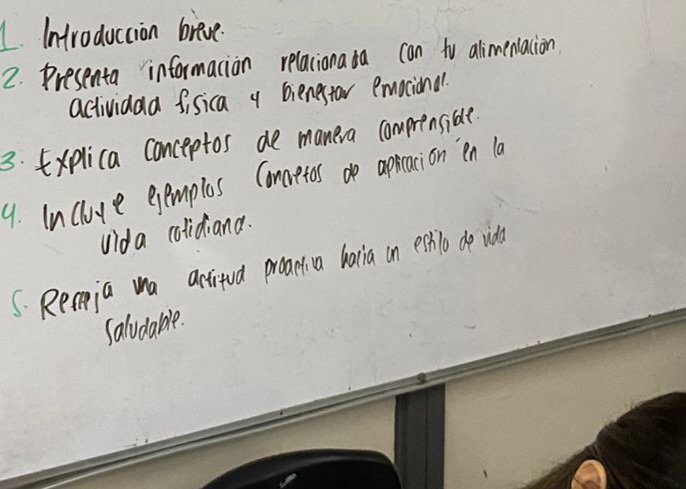 1. Introducción breve.
2. Presenta información relacionada con tu alimentación,
actividad física y bienestar emocional.
3. Explica conceptos de manera comprensible.
4. Incluye ejemplos concretos de aplicación en la
vida cotidiana.
5. Refleja una actitud proactiva hacia un estilo de vida
saludable.